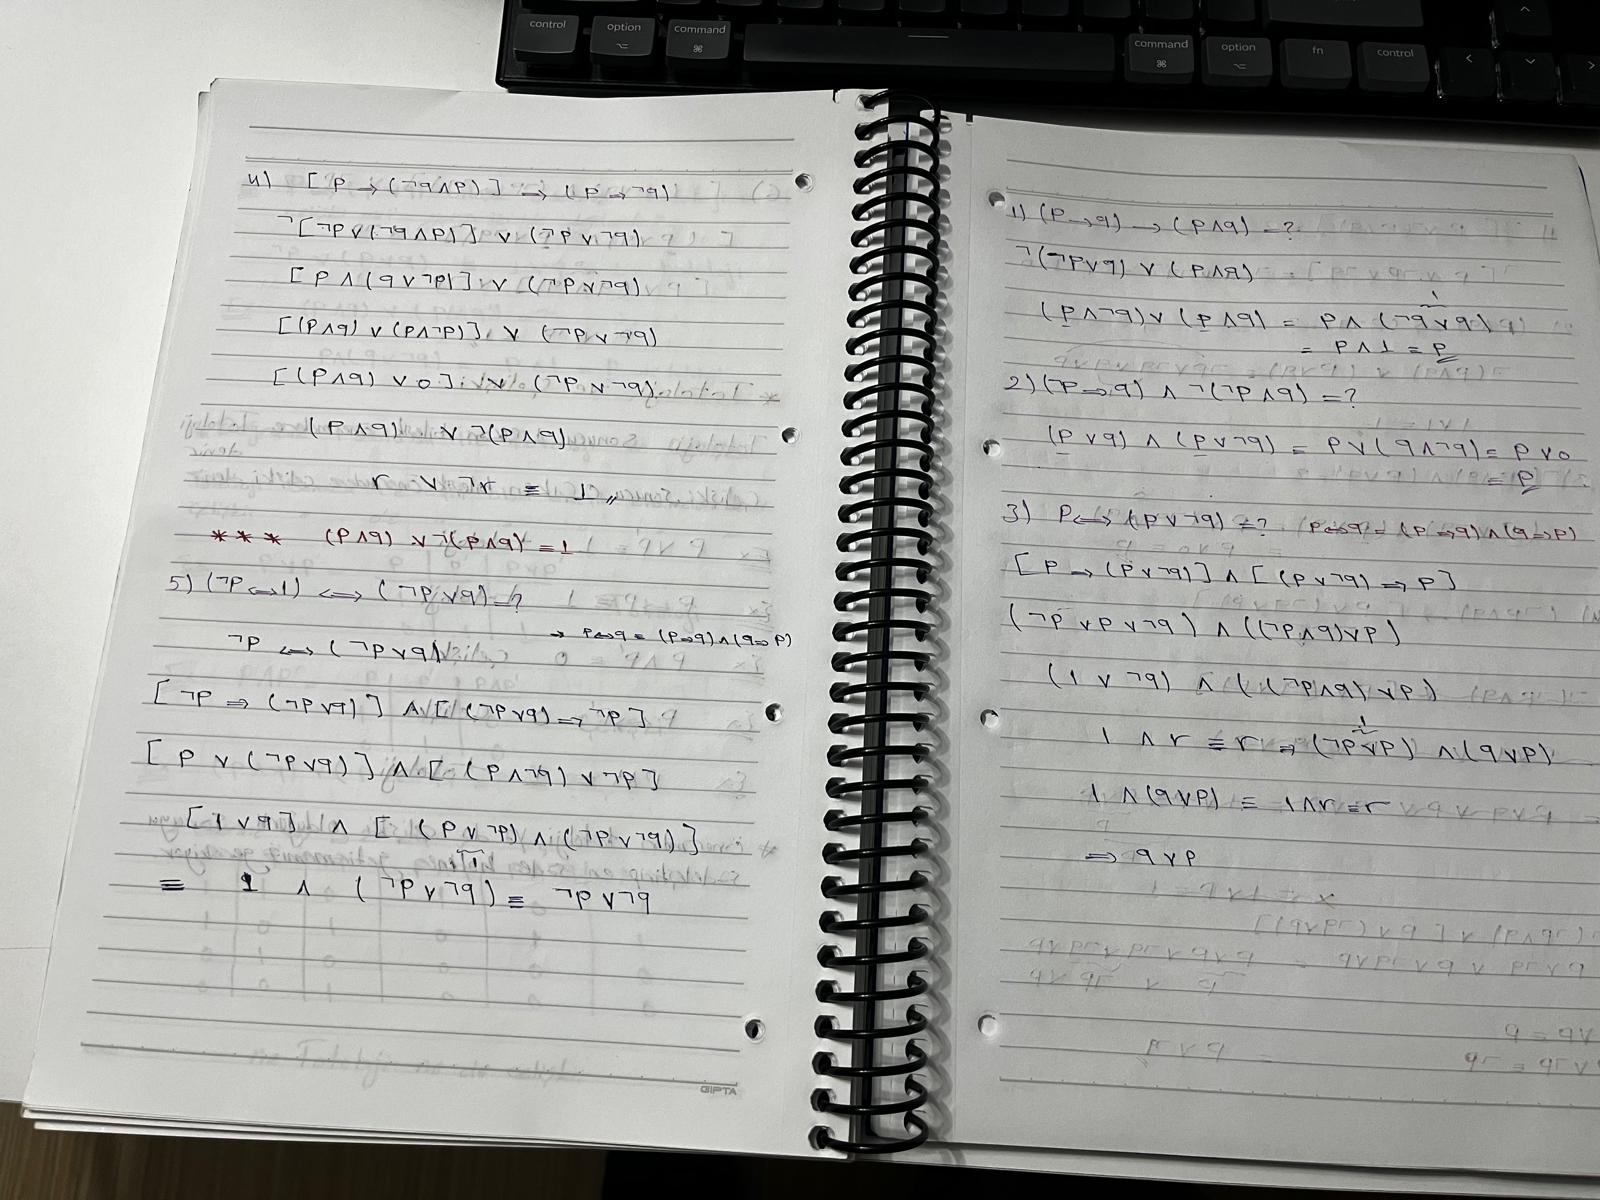 control
option
command
command
option
fn
control
4) [P → (¬q∧p)] → (p→¬q)
¬[¬p∨(¬q∧p)] ∨ (¬p∨¬q)
[p∧(q∨¬p)] ∨ (¬p∨¬q)
[(p∧q) ∨ (p∧¬p)] ∨ (¬p∨¬q)
[(p∧q) ∨ 0] ∨ (¬p∨¬q)
(p∧q) ∨ ¬(p∧q)
r ∨ ¬r ≡ 1 //
*** (p∧q) ∨ ¬(p∧q) = 1
5) (¬p⇔1) ⇔ (¬p∨q) = ?
→ p⇔q = (p⇒q)∧(q⇒p)
¬p ⇔ (¬p∨q)
[¬p ⇒ (¬p∨q)] ∧ [(¬p∨q) ⇒ ¬p]
[p ∨ (¬p∨q)] ∧ [(p∧¬q) ∨ ¬p]
[1∨q] ∧ [(p∨¬p) ∧ (¬p∨¬q)]
1
≡ 1 ∧ (¬p∨¬q) ≡ ¬p∨¬q
GIPTA
1) (p→q) → (p∧q) = ?
¬(¬p∨q) ∨ (p∧q)
1
(p∧¬q) ∨ (p∧q) = p∧(¬q∨q)
= p∧1 = p
2) (¬p→q) ∧ ¬(¬p∧q) = ?
(p∨q) ∧ (p∨¬q) = p∨(q∧¬q) = p∨0
= p
3) p⇔(p∨¬q) = ? p⇔q = (p⇒q)∧(q⇒p)
[p→(p∨¬q)] ∧ [(p∨¬q) ⇒ p]
(¬p∨p∨¬q) ∧ ((¬p∧q)∨p)
(1∨¬q) ∧ ((¬p∧q)∨p)
1
1∧r ≡ r ⇒ (¬p∨p) ∧ (q∨p)
1∧(q∨p) ≡ 1∧r≡r
⇒ q∨p